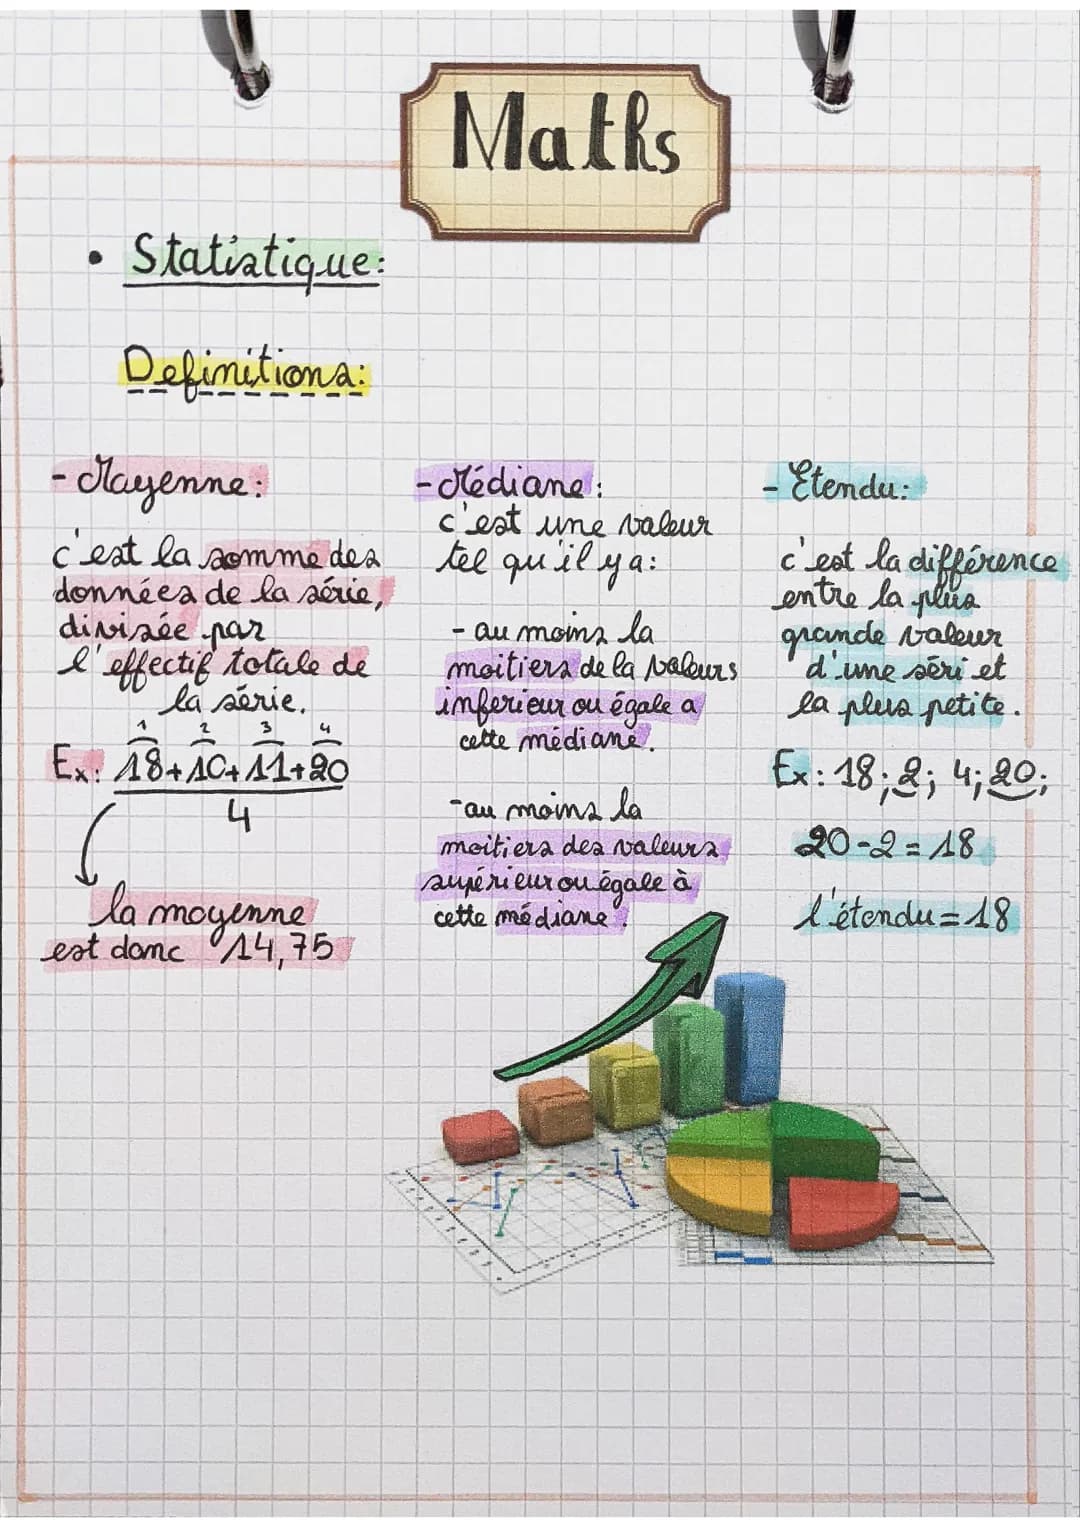 Maths
• Statistique:
Definitions:
- Moyenne:
c'est la somme des
données de la série,
divisée par
l'effectif totale de
la série.
1 2 3 4
Ex: 18+10+11+20
4
la moyenne
est donc 14,75
- Médiane:
c'est une valeur
tel qu'il y a:
- au moins la
moitiers de la valeurs
inferieur ou égale a
cette médiane.
- au moins la
moitiers des valeurs
supérieur ou égale à
cette médiane.
- Etendu:
c'est la différence
entre la plus
grande valeur
d'une séri et
la plus petite.
Ex: 18; 2; 4; 20;
20-2=18
l'étendu=18